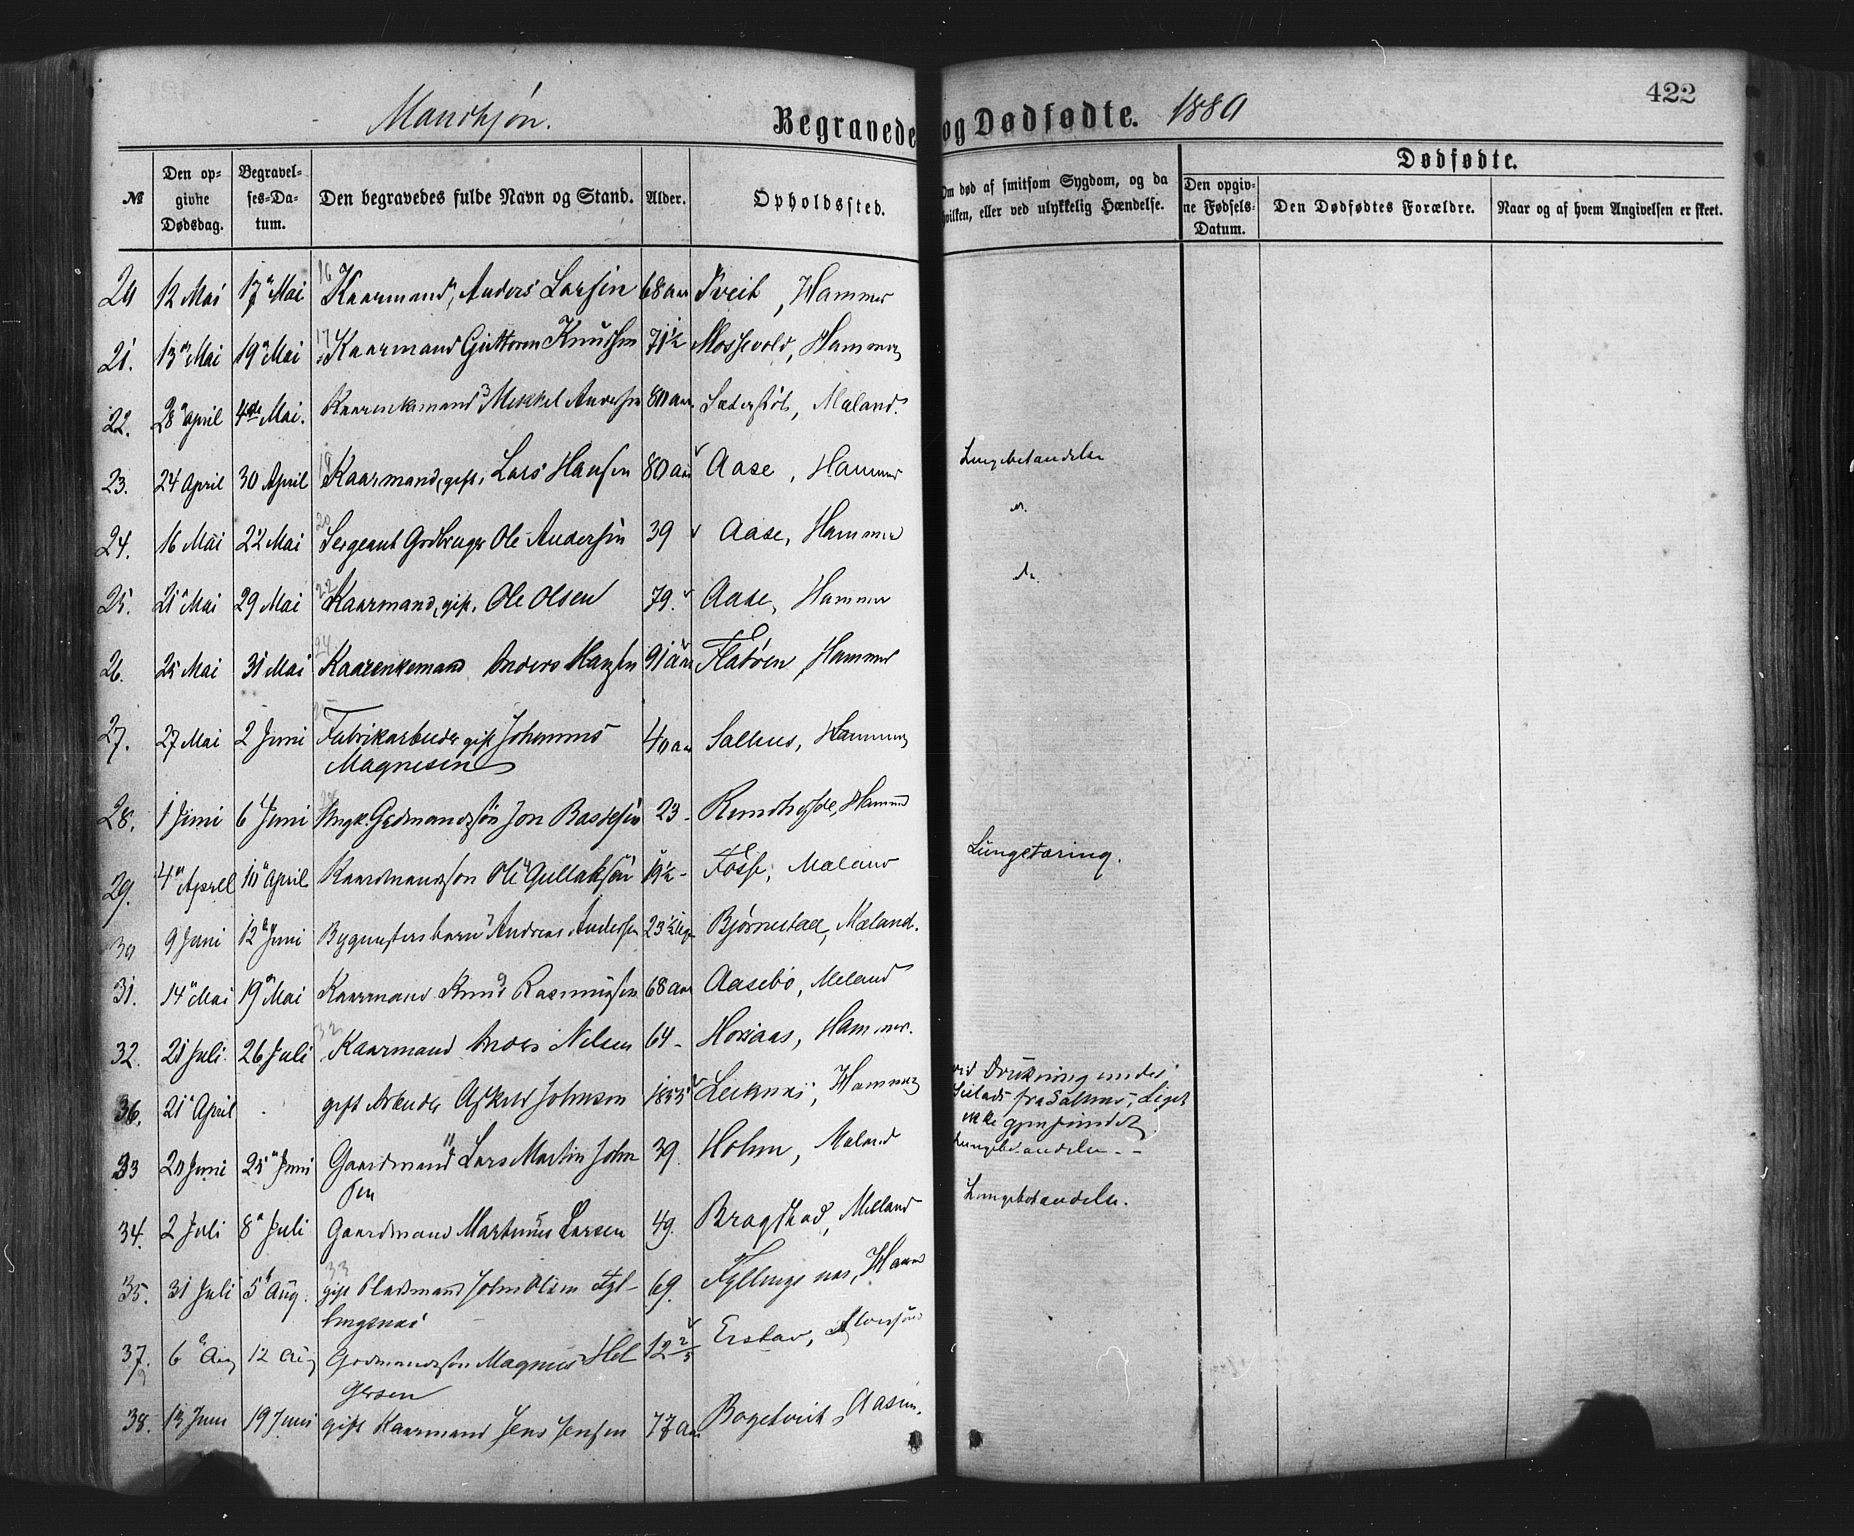 422
Mandkjøn.
Begravede og Dødfødte. 1880
№
Den opgivne Dødsdag.
Begravelses-Datum.
Den begravedes fulde Navn og Stand.
Alder.
Opholdssted.
Om død af smitsom Sygdom, og da hvilken, eller ved ulykkelig Hændelse.
Dødfødte.
Den opgivne Fødsels-Datum.
Den Dødfødtes Forældre.
Naar og af hvem Angivelsen er skeet.
20 12 Mai 17 Mai 16 Kaarmand, Anders Larsen 68 aar Tveit, Hammer
21. 13 Mai 19 Mai 17 Kaarmand Guttorm Knudsen 71½ Mossevold, Hammer
22. 28 April 4de Mai. Kaarenkemand Mikkel Andersen 80 aar Sæterstøl, Mæland.
23. 24 April 30 April Kaarmand, gift, Lars Hansen 80 aar Aase, Hammer Lungebetændelse
24. 16 Mai 22 Mai 20 Sergeant Grdbruger Ole Andersen 39 Aase, Hammer
25. 21 Mai 29 Mai 22 Kaarmand, gift, Ole Olsen 79. Aase, Hammer
26. 25 Mai 31 Mai 24 Kaarenkemand Anders Hansen 91 aar Flatøen, Hammer
27. 27 Mai 2 Juni Fabrikarbeider gift Johannes
Magnesen 40 aar Salhus, Hammer
28. 1 Juni 6 Juni Ungk. Grdmandssøn Jon Baardsen 23 - Hammer
29. 4 April 10 April Kaardmandssøn Ole Gullaksen Fosse, Mæland Lungetæring.
30 9 Juni 12 Juni Andreas Andersen 23½ Bjørnestad, Mæland.
31. 14 Mai 19 Mai Kaarmand Knud Rasmussen 68 aar Aasebø, Meland
32. 21 Juli 26 Juli 32 Kaarmand Anders Nilsen 64 - Horsaas, Hammer.
36. 21 April gift Arbeider Johnson 1855 Leiknes, Hammer ved Drukning under
Seilads fra Salhus, Liget
ikke gjenfundet
33 20 Juni 25 Juni Gaardmand Lars Martin John
sen 39. Holm, Mæland Lungebetændelse
34. 2 Juli 8 Juli Gaardmand Martinus Larsen 49. Bragstad, Mæland Lungebetændelse.
35. 31 Juli 5 Aug. 33 gift Pladsmand John Olsen Fyl-
lingsnæs 69. Fyllingsnæs, Hamm
37. 6 Aug 12 Aug Grdmandssøn Magnus Hel
gesen 12 2/5 Erstad, Alversund
38. 13 Juni 19 Juni gift Kaarmand Jens Jensen 77 aar Bogetveit,